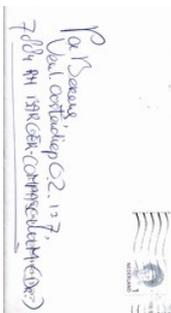 Pa Beens,
Verl. Oosterdiep O.Z. 127,
7884 PH BARGER-COMPASCUUM (DR.)
NEDERLAND
1